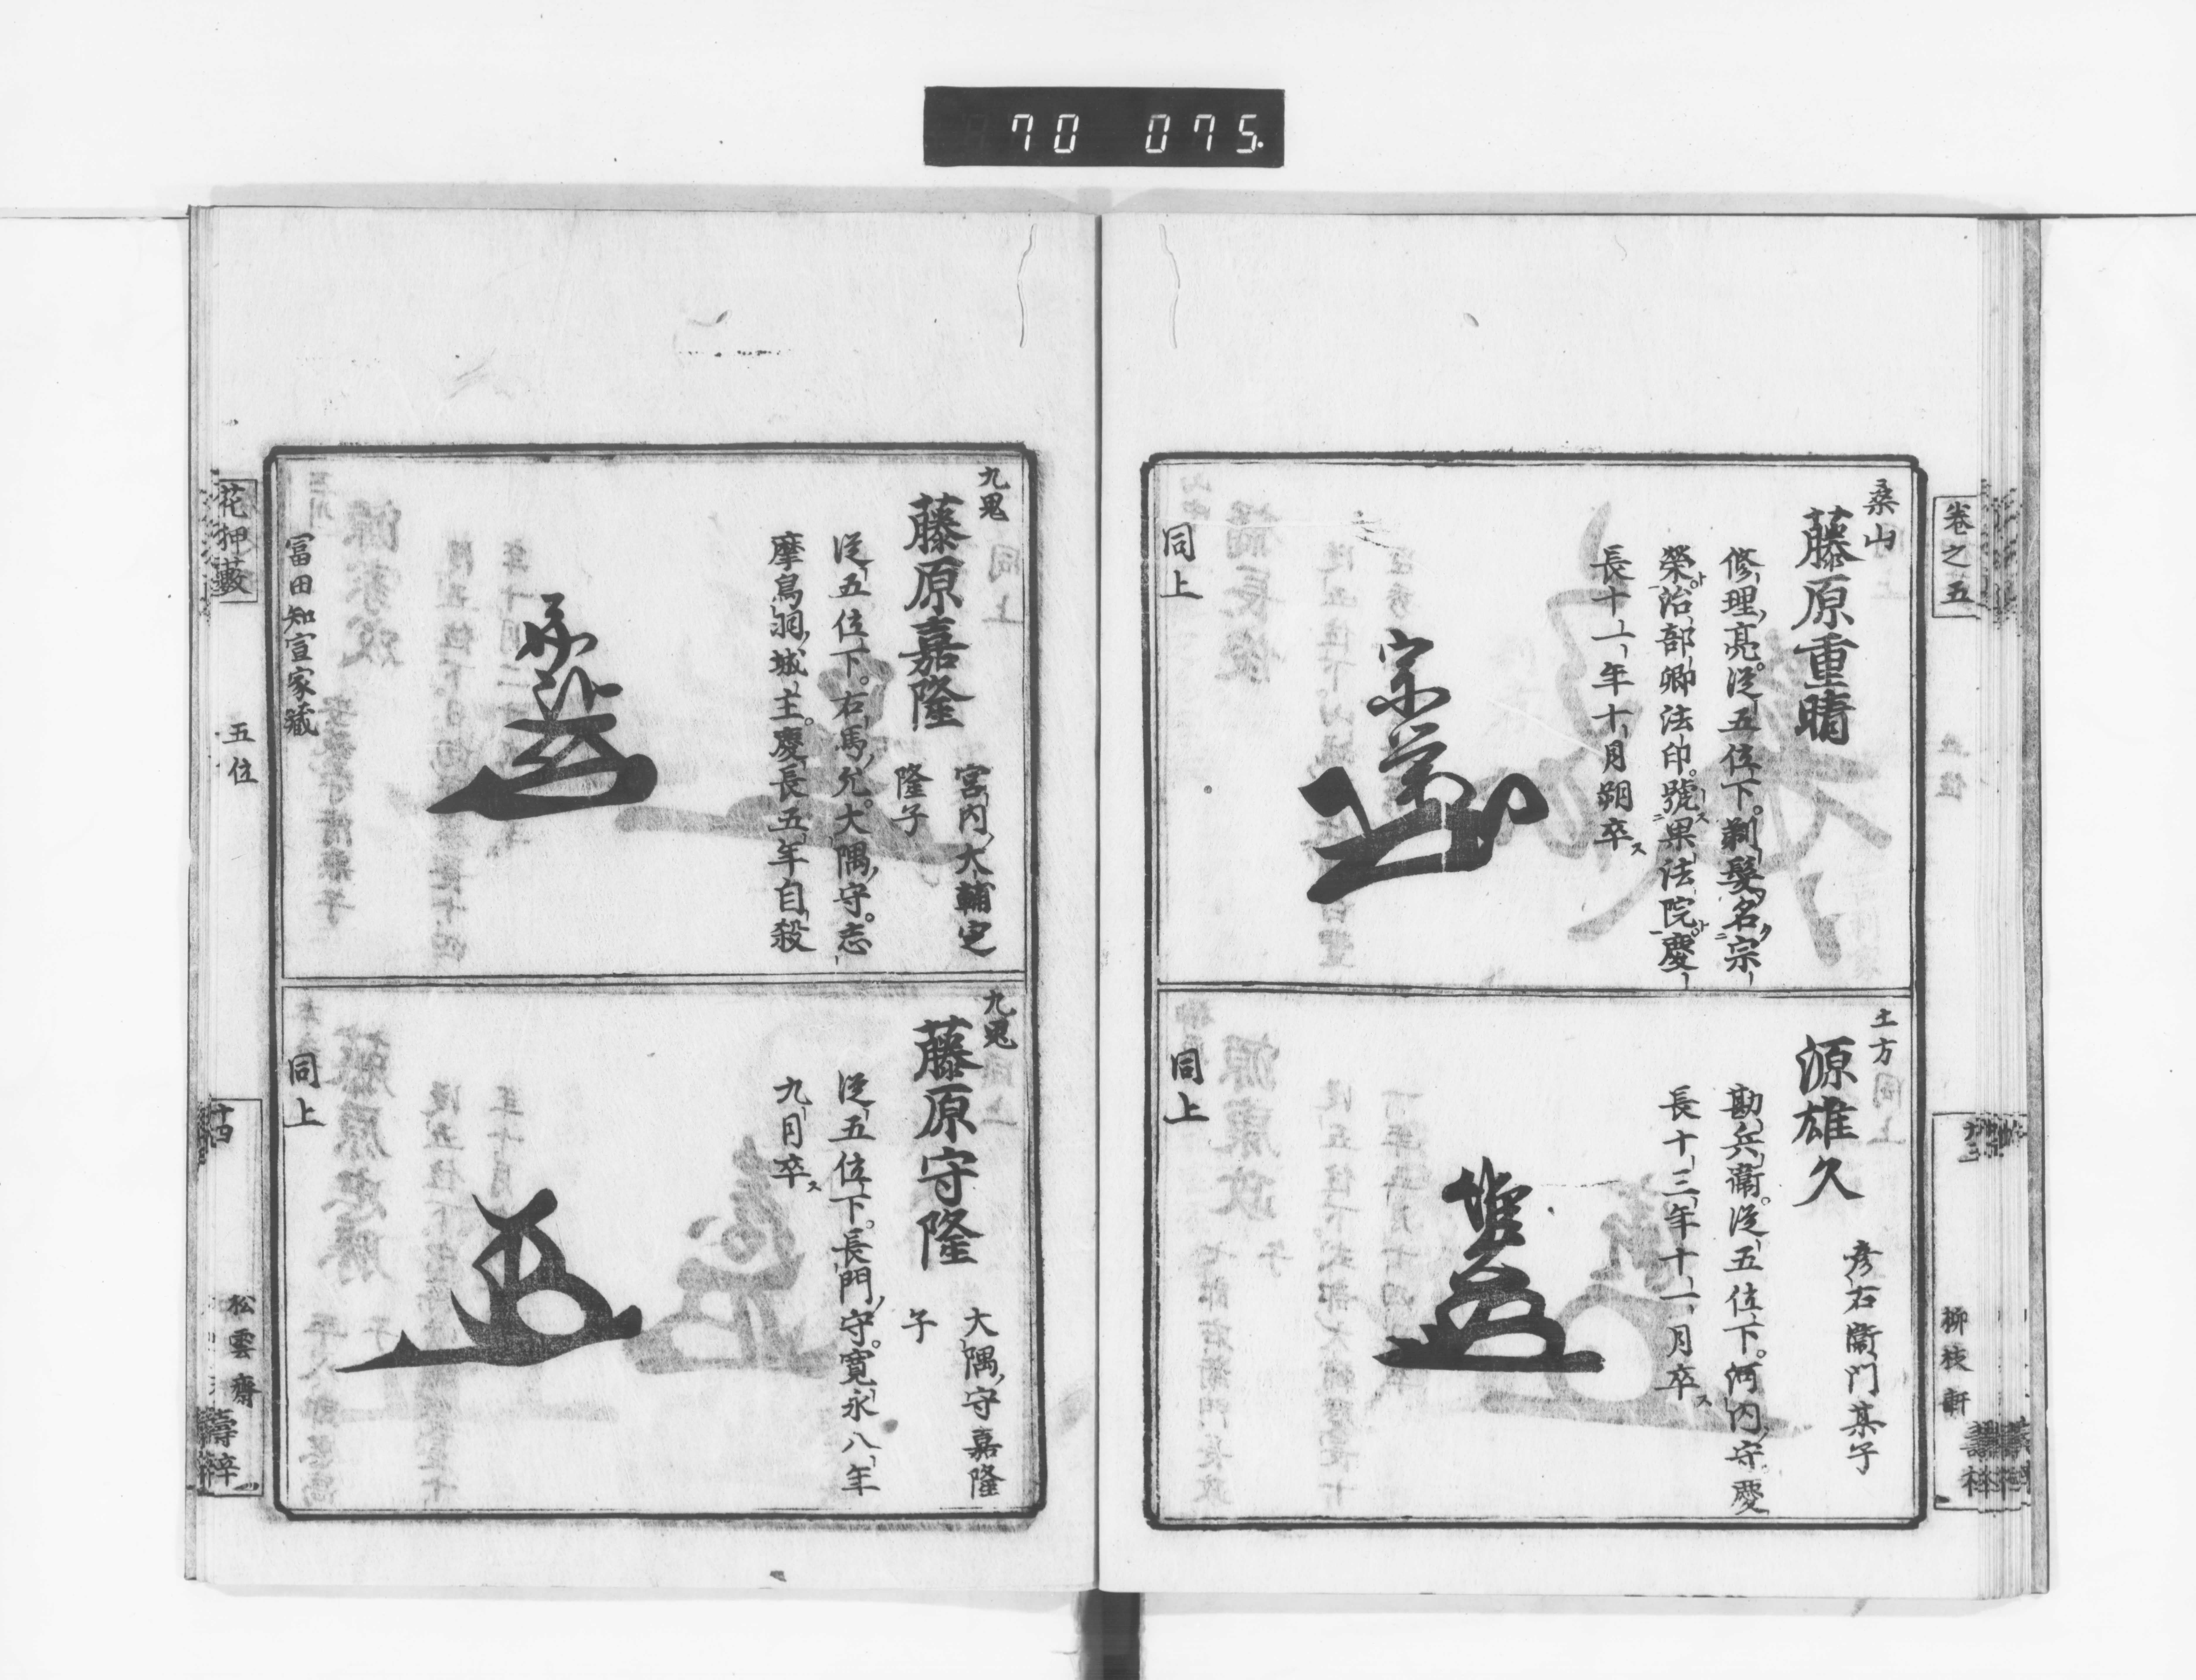 70 075.
卷之五
柳枝軒
桑山
藤原重晴
修理亮。從五位下。剃髮名宗
榮治部卿法印。號果法院慶
長十一年十月朔卒ス
同上
土方
源雄久
彦右衞門某子
勘兵衞。從五位下。河内守。慶
長十三年十一月卒ス
同上
九鬼
藤原嘉隆
宮内大輔定
隆子
從五位下。右馬允。大隅守。志
摩鳥羽城主。慶長五年自殺
冨田知宣家藏
九鬼
藤原守隆
大隅守嘉隆
子
從五位下。長門守。寛永八年
九月卒ス
同上
花押藪
五位
十四
松雲齋